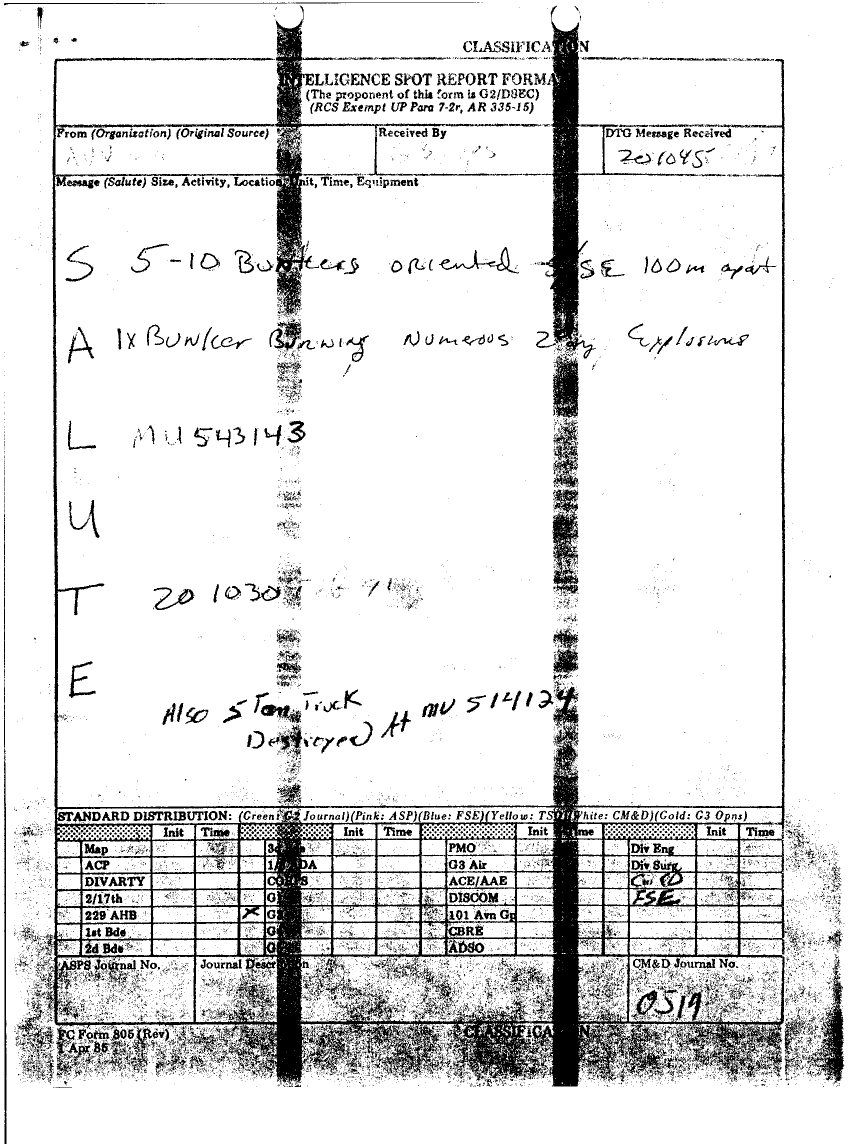 CLASSIFICATION
INTELLIGENCE SPOT REPORT FORMA
(The proponent of this form is G2/DSEC)
(RCS Exempt UP Para 7-2r, AR 335-15)
From (Organization) (Original Source) Received By DTG Message Received
201045
Message (Salute) Size, Activity, Location, Unit, Time, Equipment
S 5-10 Bunkers oriented SE 100m apart
A 1x Bunker Burning Numerous 2ndry Explosions
L MU 543143
U
T 20 1030
E
Also 5 Ton Truck
Destroyed At MU 514124
STANDARD DISTRIBUTION: (Green: G2 Journal)(Pink: ASP)(Blue: FSE)(Yellow: TSO)(White: CM&D)(Gold: G3 Opns)
Init Time Init Time Init Time Init Time
Map PMO Div Eng
ACP G3 Air Div Surg
DIVARTY CORPS ACE/AAE CM&D
2/17th DISCOM FSE
229 AHB X 101 Avn Gp
1st Bde CBRE
2d Bde ADSO
ASPS Journal No. Journal Description CM&D Journal No.
0519
FC Form 805 (Rev) CLASSIFICATION
1 Apr 85